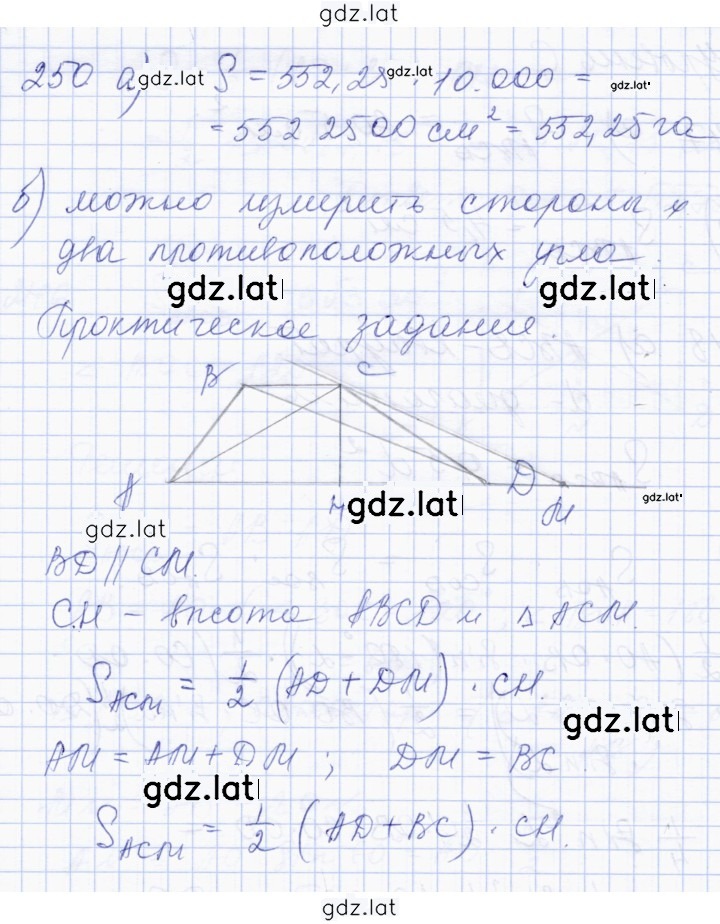 gdz.lat
250 а) gdz.lat S = 552,25 gdz.lat · 10.000 = gdz.lat
= 552 2500 см² = 552,25 га
б) можно измерить стороны и
два противоположных угла.
gdz.lat gdz.lat
Практическое задание.
B C
A H D M
gdz.lat gdz.lat gdz.lat
BD || CM.
CH – высота ABCD и Δ ACM.
S_ACM = 1/2 (AD + DM) · CH.
gdz.lat
AM = AM + DM ; DM = BC
gdz.lat
S_ACM = 1/2 (AD + BC) · CH.
gdz.lat